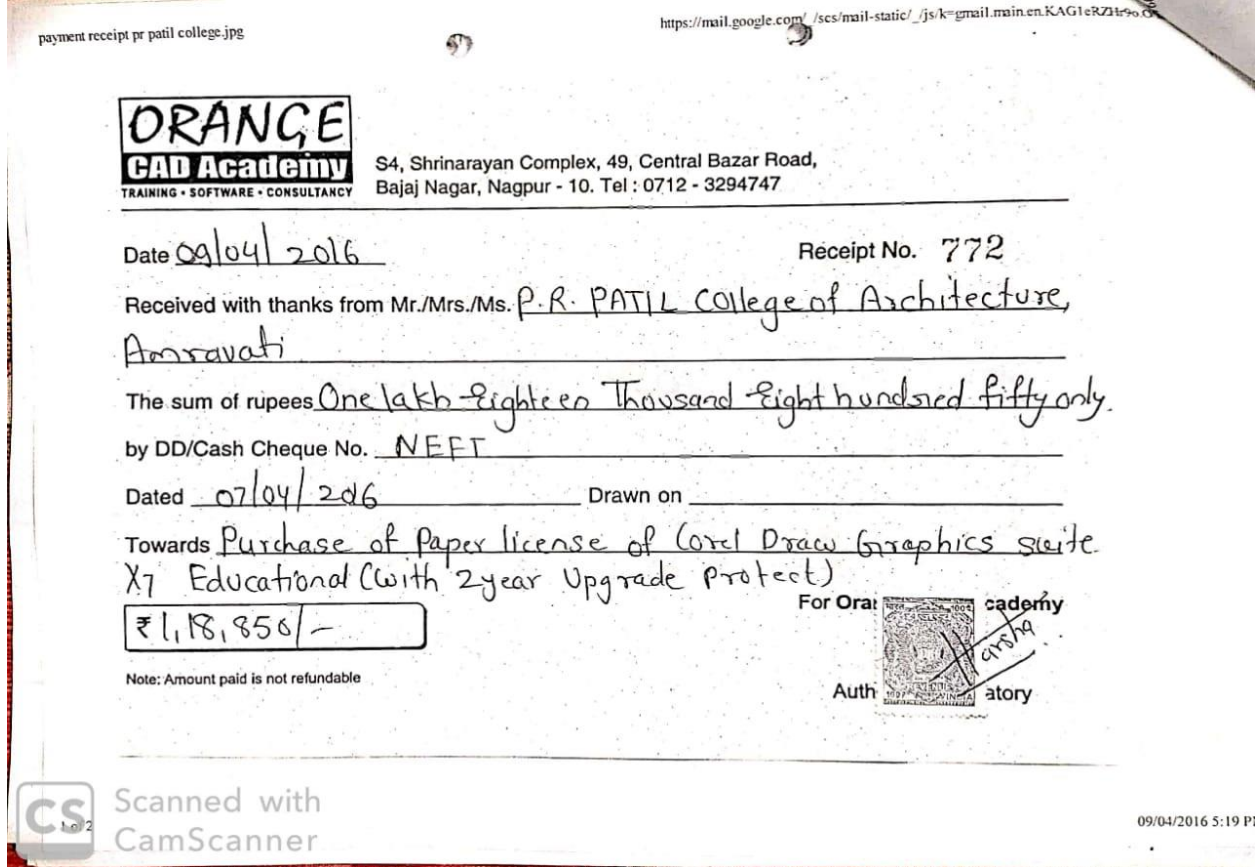 payment receipt pr patil college.jpg
https://mail.google.com/_/scs/mail-static/_/js/k=gmail.main.en.KAG1eRZHr9o.O
ORANGE
CAD Academy
TRAINING • SOFTWARE • CONSULTANCY
S4, Shrinarayan Complex, 49, Central Bazar Road,
Bajaj Nagar, Nagpur - 10. Tel : 0712 - 3294747
Date 09/04/2016
Receipt No. 772
Received with thanks from Mr./Mrs./Ms. P.R. PATIL College of Architecture,
Amravati
The sum of rupees One lakh Eighteen Thousand Eight hundred fifty only.
by DD/Cash Cheque No. NEFT
Dated 07/04/2016 Drawn on
Towards Purchase of Paper license of Corel Draw Graphics suite
X7 Educational (with 2 year Upgrade Protect)
₹ 1,18,850/-
For Ora cademy
arsha
Note: Amount paid is not refundable
Auth atory
CS Scanned with
CamScanner
1 of 2
09/04/2016 5:19 P